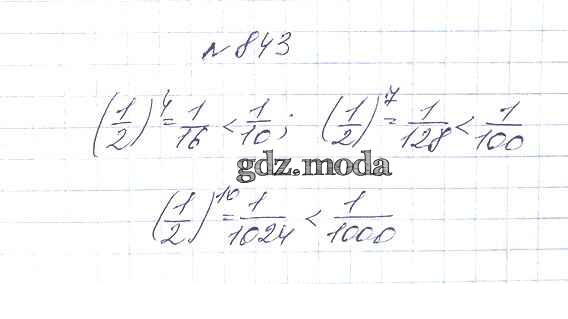 № 843
(1/2)^4 = 1/16 < 1/10; (1/2)^7 = 1/128 < 1/100
gdz.moda
(1/2)^10 = 1/1024 < 1/1000